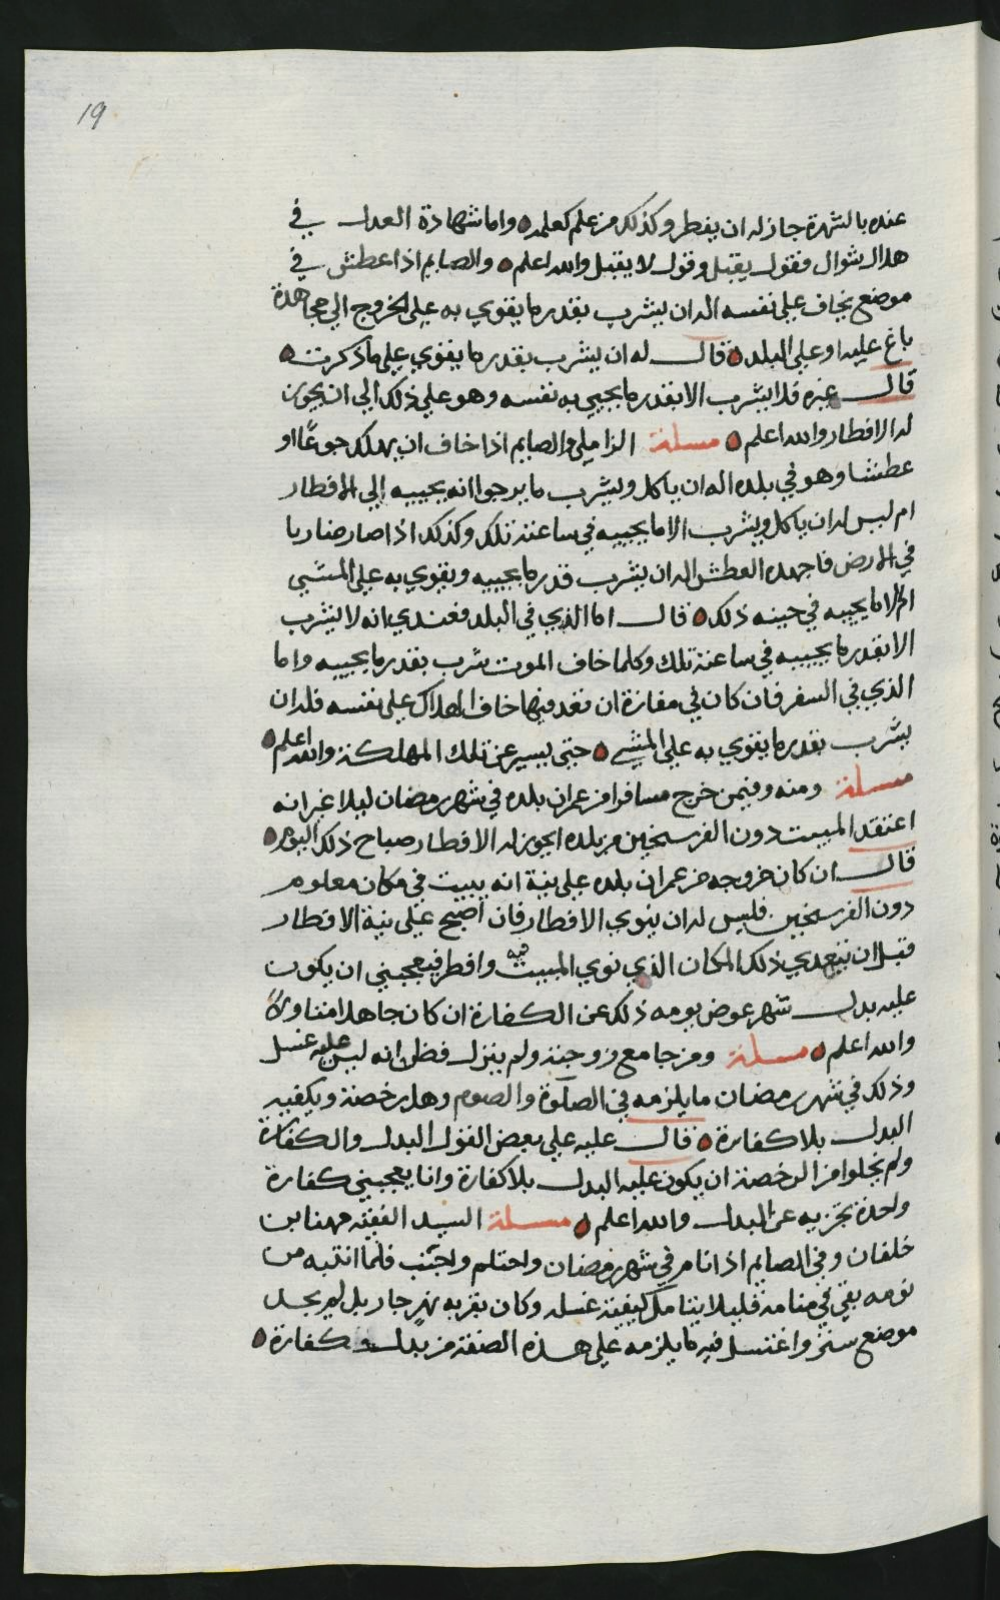 19
عنده بالشهرة جاز له ان يفطر وكذلك من علم كعلمه واما شهادة العدل في
هلال شوال فقول يقبل وقول لا يقبل والله اعلم والصايم اذا عطش في
موضع يخاف على نفسه اله ان يشرب بقدر ما يقوي به على الخروج الي مجاهدة
باغ عليه او على البلد قال له ان يشرب بقدر ما يقوي على ما ذكرت
قال غيره فلا يشرب الا بقدر ما يحيي به نفسه وهو على ذلك الي ان يجوز
له الافطار والله اعلم مسلة الزاملي والصايم اذا خاف ان يهلك جوعًا او
عطشا وهو في بلده اله ان ياكل ويشرب ما يرجوا انه يحييه الي الافطار
ام ليس له ان ياكل ويشرب الا ما يحييه في ساعته تلك وكذلك اذا صار ضاربا
في الارض فاجهده العطش اله ان يشرب قدر ما يحييه ويقوي به على المشي
ام الا ما يحييه في حينه ذلك قال اما الذي في البلد فعندي انه لا يشرب
الا بقدر ما يحييه في ساعته تلك وكلما خاف الموت شرب بقدر ما يحييه واما
الذي في السفر فان كان في مفازة ان قعد فيها خاف الهلاك على نفسه فله ان
يشرب بقدر ما يقوي به على المشي حتى يسير عن تلك المهلكة والله اعلم
مسلة ومنه وفيمن خرج مسافرا من عمران بلده في شهر رمضان ليلا غير انه
اعتقد المبيت دون الفرسخين من بلده ايجوز له الافطار صباح ذلك اليوم
قال ان كان خروجه من عمران بلده على نية انه يبيت في مكان معلوم
دون الفرسخين فليس له ان ينوي الافطار فان اصبح على نية الافطار
قبل ان يتعدي ذلك المكان الذي نوي المبيت فيه وافطر فيعجبني ان يكون
عليه بدل شهر عوض يومه ذلك عن الكفارة ان كان جاهلا متاولا
والله اعلم مسلة ومن جامع زوجته ولم ينزل فظن انه ليس عليه غسل
وذلك في شهر رمضان ما يلزمه في الصلوة والصوم وهل رخصة ويكفيه
البدل بلا كفارة قال عليه على بعض القول البدل والكفارة
ولم يخلوا من الرخصة ان يكون عليه البدل بلا كفارة وانا يعجبني كفارة
واحدة تجزيه عن البدل والله اعلم مسلة السيد الفقيه مهنا بن
خلفان وفي الصايم اذا نام في شهر رمضان واحتلم واجنب فلما انتبه من
نومه بقي في منامه قليلا يتامل كيفية غسله وكان بقربه نهر جار بل لم يجد
موضع ستر واغتسل فيه ما يلزمه على هذه الصفة من بدل وكفارة